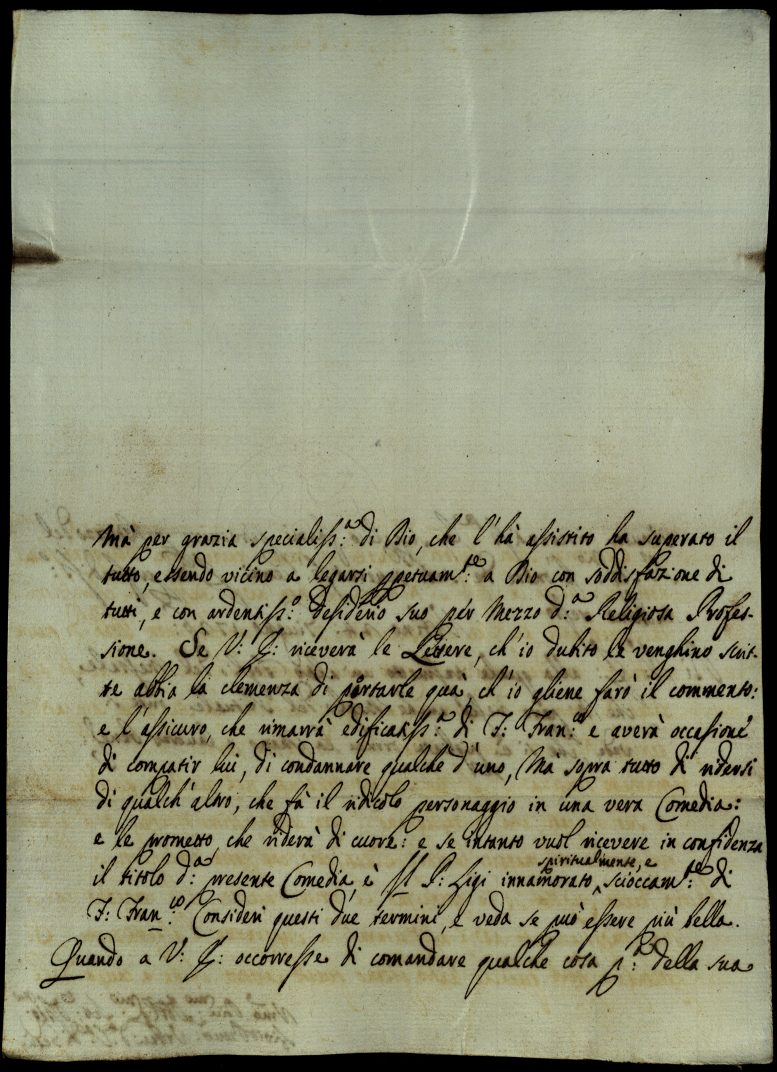 Mà per grazia specialiss:ᵃ di Dio, che l'hà assistito ha superato il
tutto, essendo vicino a legarsi ppetuamᵗᵉ: a Dio con soddisfazione di
tutti, e con ardentiss:ᵒ desiderio suo per mezzo d:ᵃ Religiosa Profes-
sione. Se V: S: riceverà le Lettere, ch'io dubito le venghino scrit-
te abbia la clemenza di portarle quà, ch'io gliene farò il commento:
e l'assicuro, che rimarrà edificatiss:ᵃ di F: Fran:ᶜᵒ e averà occasione
di compatir lui, di condannare qualche d'uno, Mà sopra tutto di ridersi
di qualch'altro, che fà il ridicolo personaggio in una vera Comedia:
e le prometto, che riderà di cuore: e se intanto vuol ricevere in confidenza
il titolo d:ᵃ presente Comedia, è Il P: Ligi innamorato spiritualmente, e scioccamᵗᵉ: di
F: Fran:ᶜᵒ Consideri questi due termini, e veda se può essere più bella.
Quando a V: S: occorresse di comandare qualche cosa p:ᵃ della sua